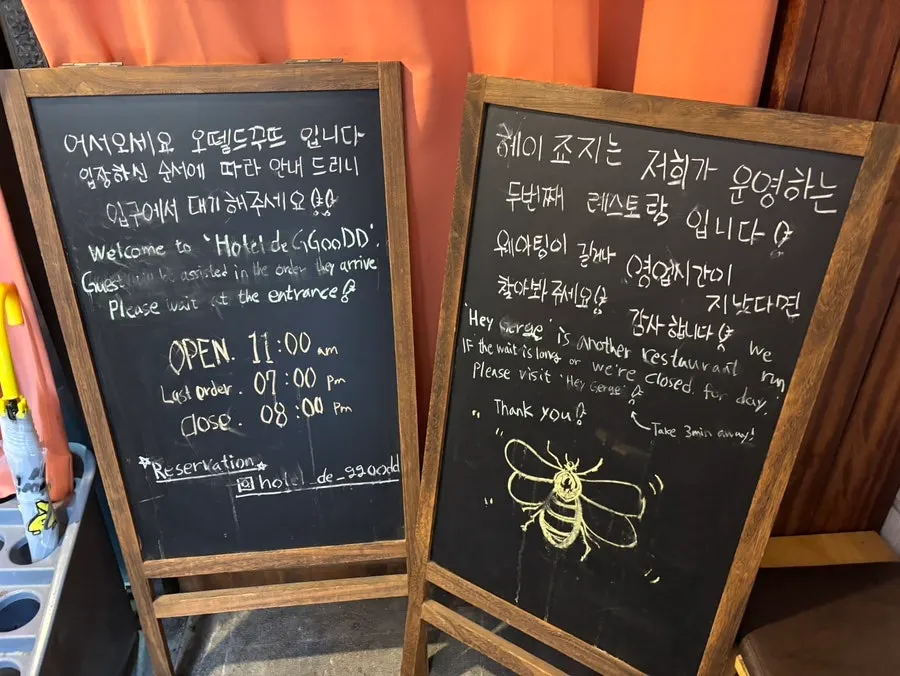 어서오세요 오뗄드꾸뜨 입니다
입장하신 순서에 따라 안내 드리니
입구에서 대기해주세요!!
Welcome to 'Hotel de GGooDD'.
Guest will be assisted in the order they arrive
Please wait at the entrance!
OPEN. 11:00 am
Last order. 07:00 pm
Close. 08:00 pm
☆Reservation☆
hotel_de_ggoodd
헤이죠지는 저희가 운영하는
두번째 레스토랑 입니다!
웨이팅이 길거나 영업시간이 지났다면
찾아봐주세요! 감사합니다!
'Hey Gerge' is another restaurant we run
IF the wait is long or we're closed for day,
Please visit 'Hey Gerge'!
Take 3min away!
Thank you!